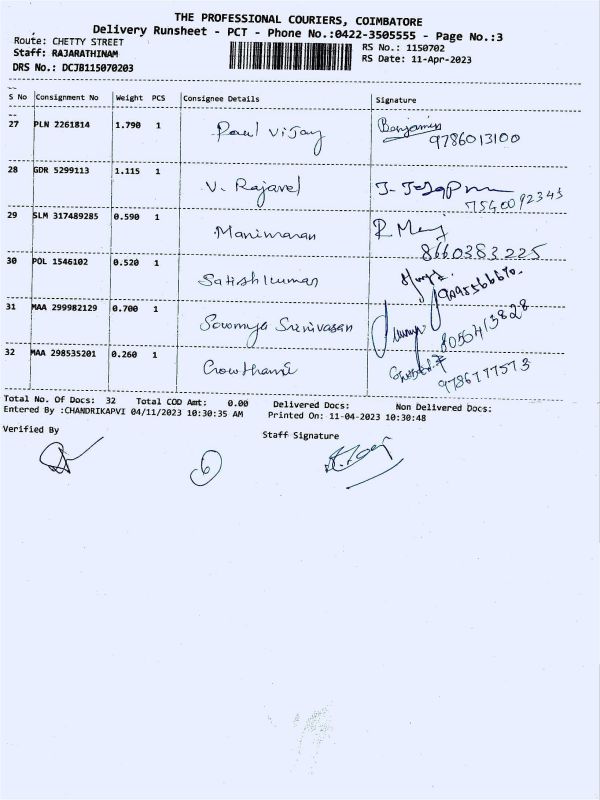 THE PROFESSIONAL COURIERS, COIMBATORE
Delivery Runsheet - PCT - Phone No.:0422-3505555 - Page No.:3
Route: CHETTY STREET
RS No.: 1150702
Staff: RAJARATHINAM
RS Date: 11-Apr-2023
DRS No.: DCJB115070203
S No Consignment No Weight PCS Consignee Details Signature
27 PLN 2261814 1.790 1 Paul Vijay Benjamin
9786013100
28 GDR 5299113 1.115 1 V. Rajavel
7540092343
29 SLM 317489285 0.590 1 Manimaran
8660383225
30 POL 1546102 0.520 1 Satishkumar
31 MAA 299982129 0.700 1 Sowmya Srinivasan
8050413828
32 MAA 298535201 0.260 1 Gowthami
9786777573
Total No. Of Docs: 32 Total COD Amt: 0.00 Delivered Docs: Non Delivered Docs:
Entered By :CHANDRIKAPVI 04/11/2023 10:30:35 AM Printed On: 11-04-2023 10:30:48
Verified By
Staff Signature
6